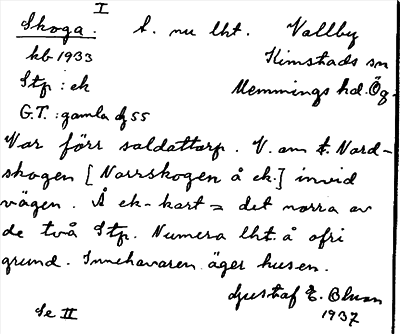 I
Skoga. t. nu lht. Vallby
kb 1933 Kimstads sn
Stp : ek Memmings hd. Ög.
G.T. : gamla 55
Var förr soldattorp. V. om t. Nord-
skogen [Norrskogen å ek.] invid
vägen. Å ek-kart = det norra av
de två Stp. Numera lht. å ofri
grund. Innehavaren äger husen.
Gustaf E. Blman
1937
Se II